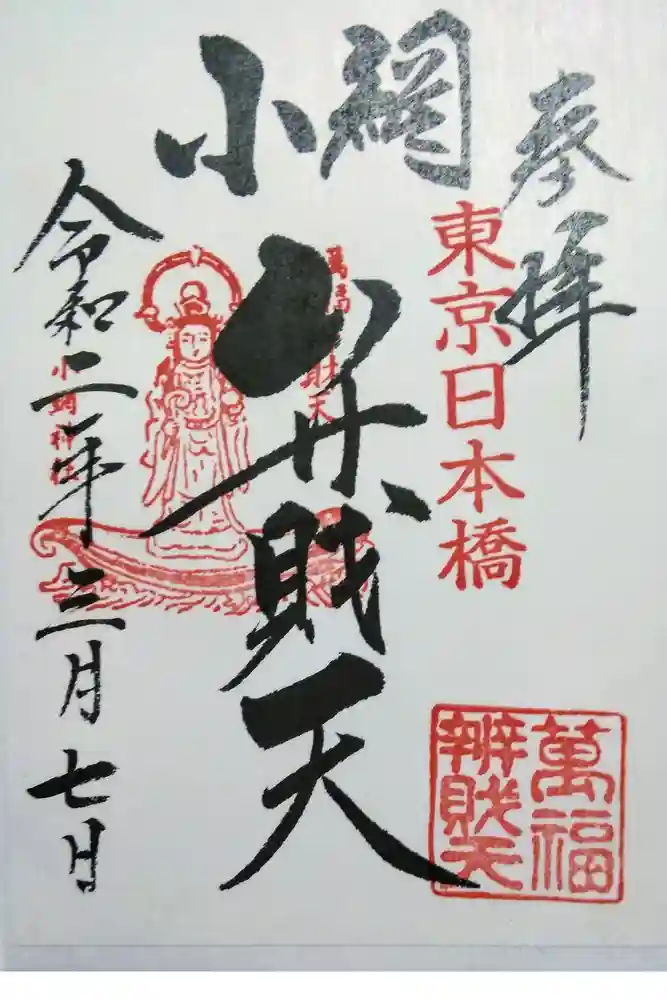 奉拝
東京日本橋
小網
弁財天
令和二年三月七日
小網神社
萬福
辨財天